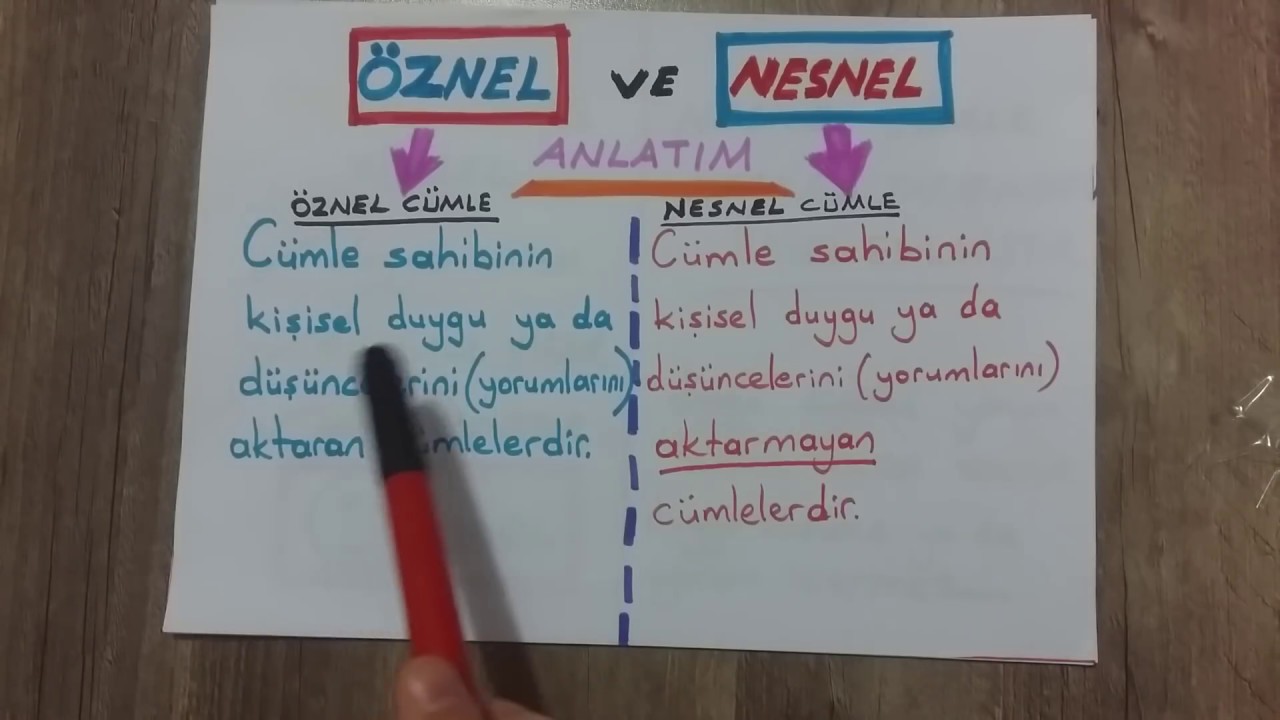 ÖZNEL VE NESNEL
ANLATIM
ÖZNEL CÜMLE
Cümle sahibinin
kişisel duygu ya da
(yorumlarını)
aktaran
NESNEL CÜMLE
Cümle sahibinin
kişisel duygu ya da
düşüncelerini (yorumlarını)
aktarmayan
cümlelerdir.